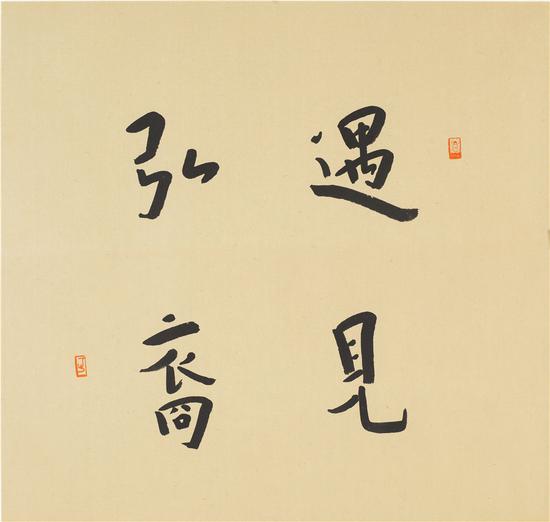 遇見
弘裔